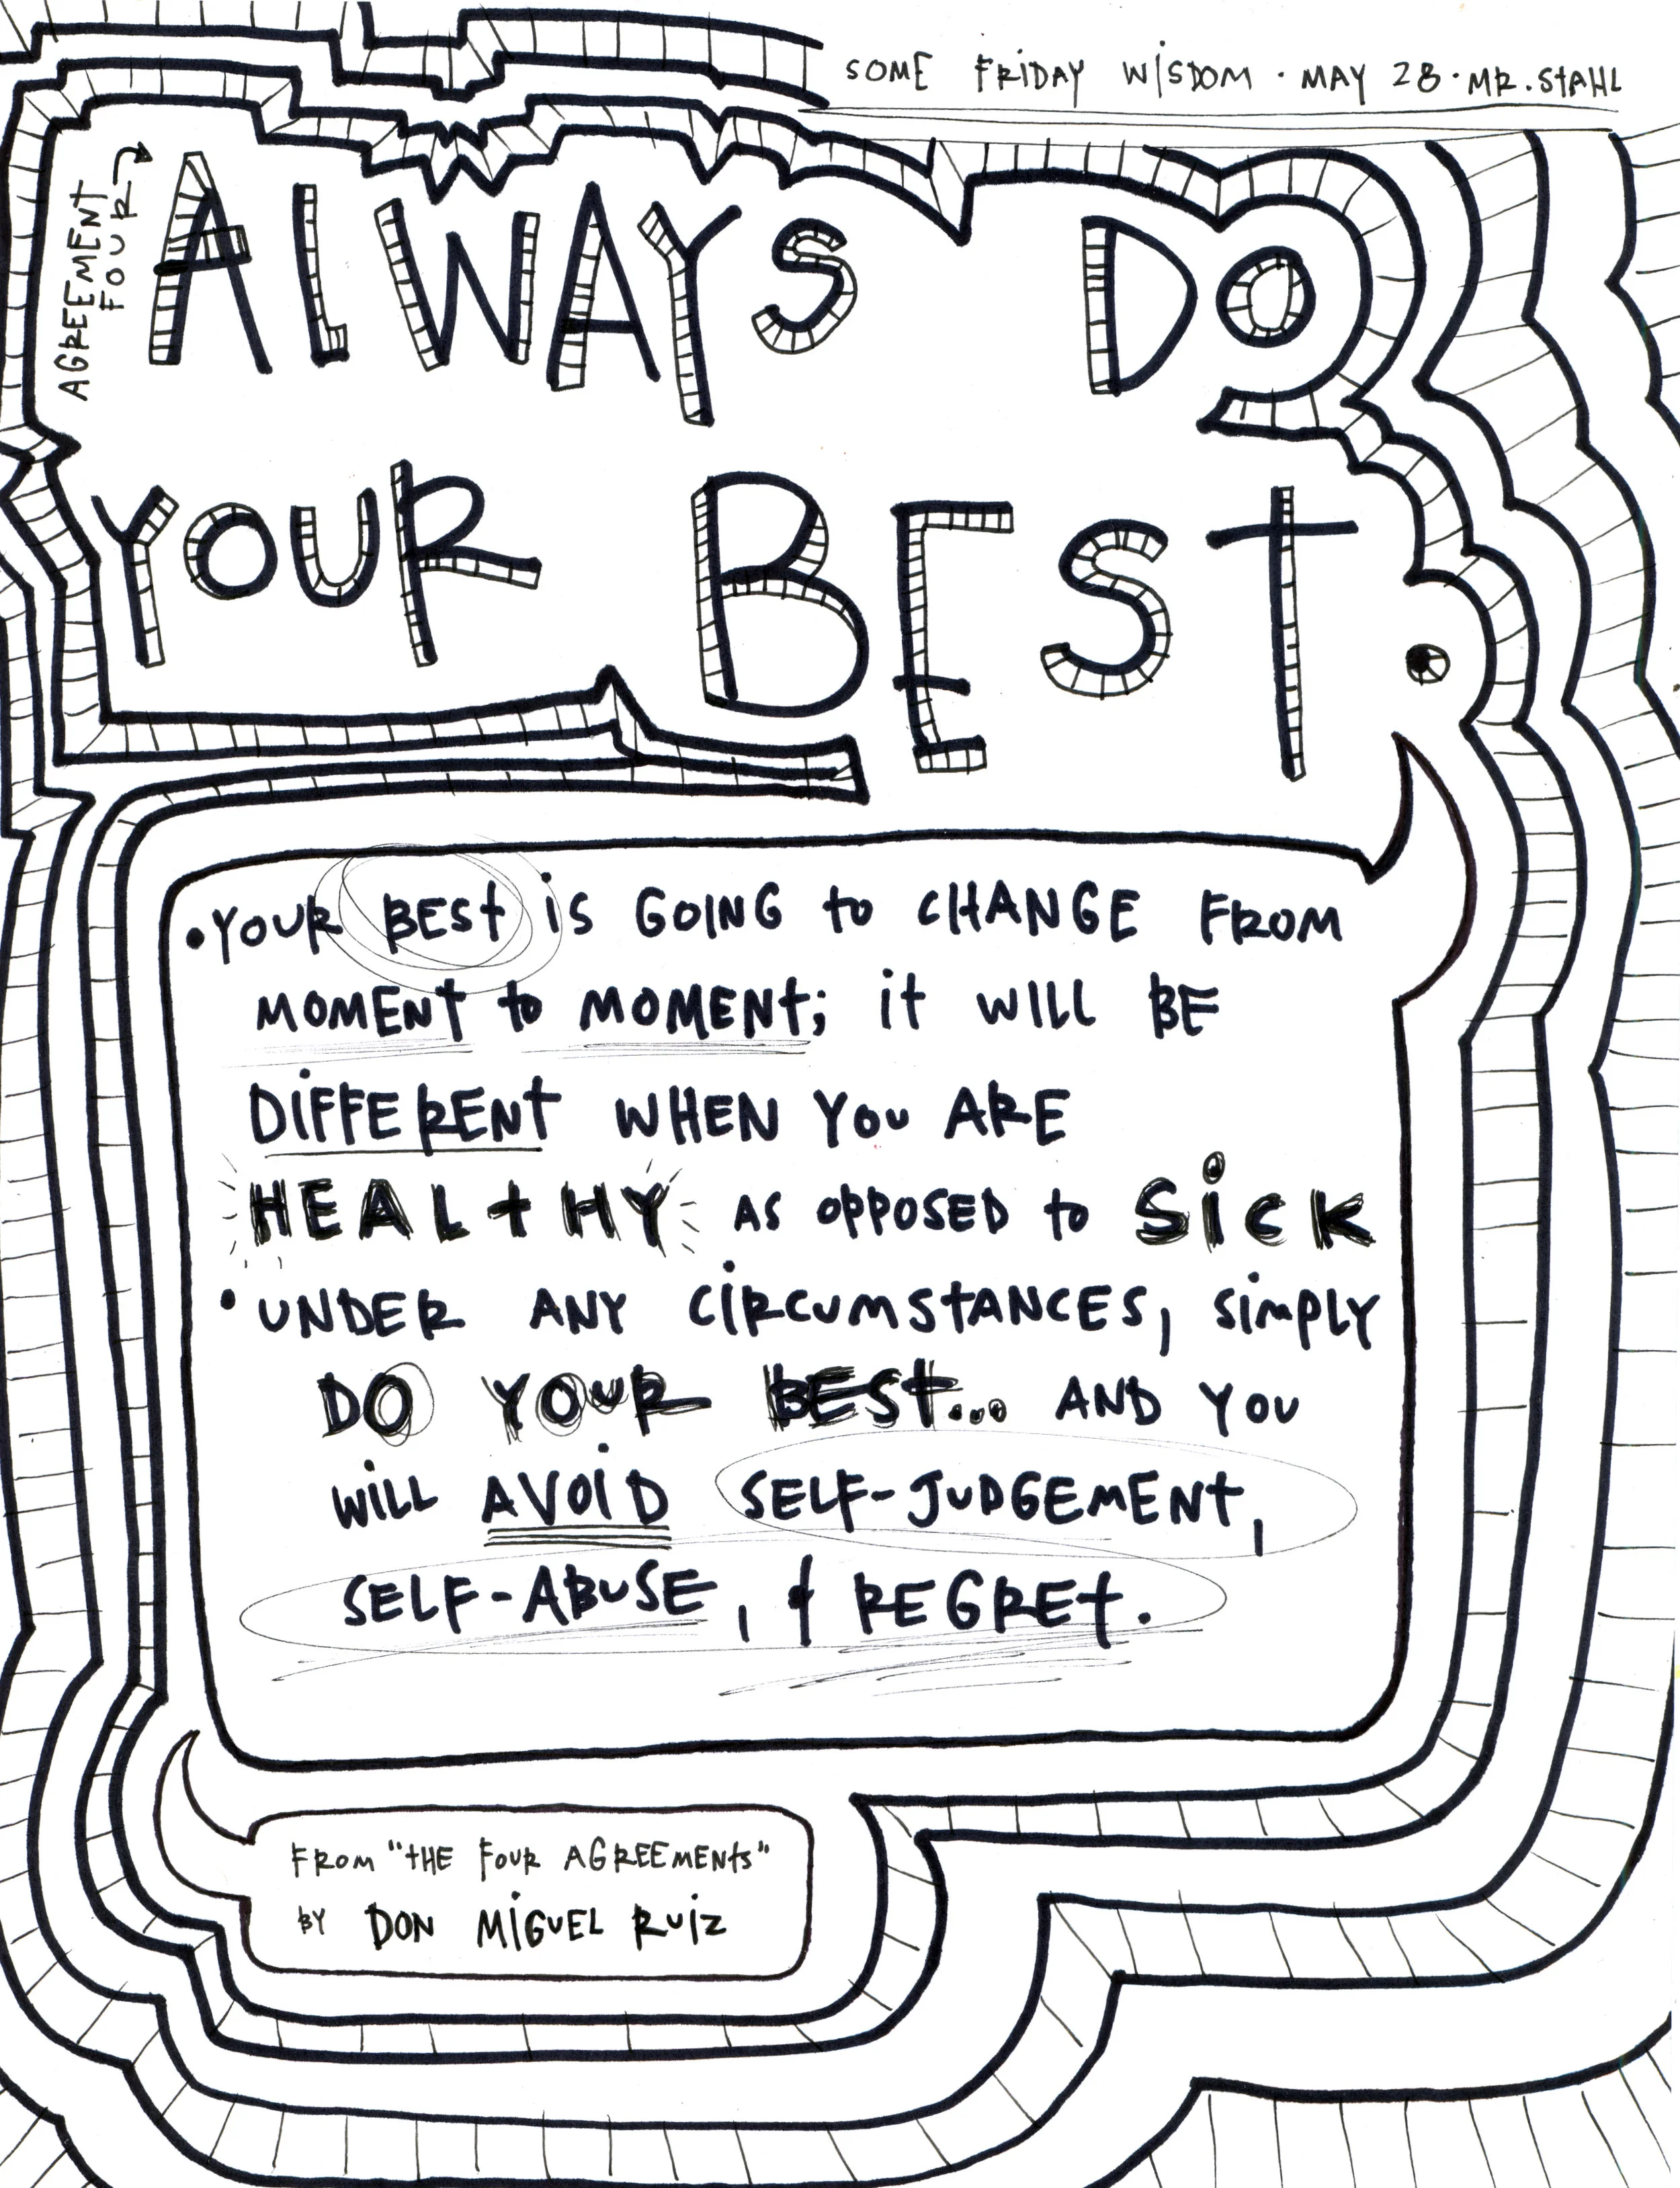 SOME FRIDAY WISDOM · MAY 28 · MR. STAHL
AGREEMENT
FOUR
ALWAYS DO
YOUR BEST.
• YOUR BEST is GOING to CHANGE FROM
MOMENT to MOMENT; it WILL BE
DiFFERENT WHEN YOU ARE
HEALtHY AS OPPOSED to SiCK
• UNDER ANY CiRCUMSTANCES, SiMPLY
DO YOUR BEST... AND YOU
WiLL AVOiD SELF-JUDGEMENT,
SELF-ABUSE, & REGRET.
FROM "tHE FOUR AGREEMENtS"
BY DON MiGUEL RUiZ